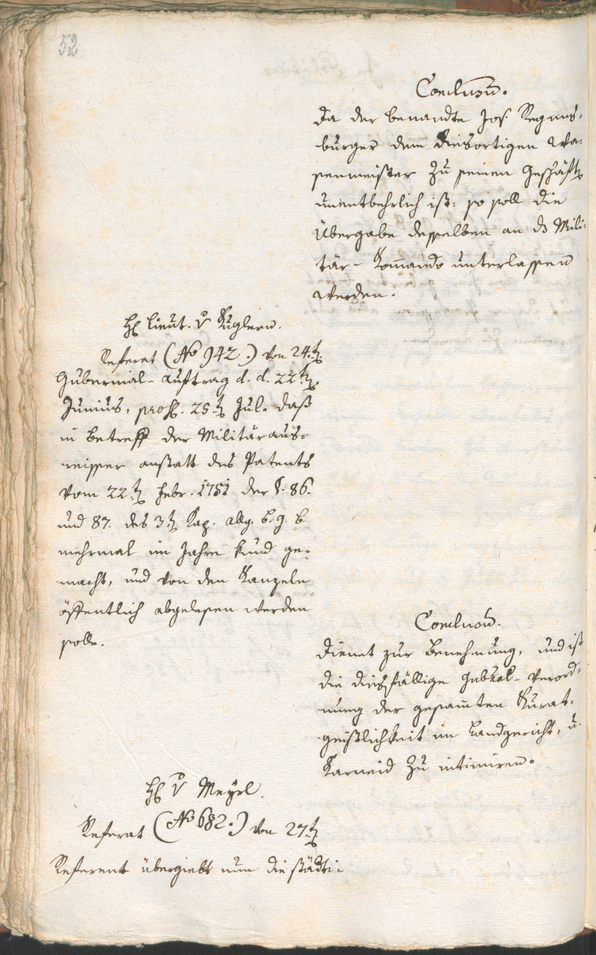 52
Conclusū.
Da der benandte Jos. Regens-
burger dem diesortigen Wa-
penmeister zu seinen Geschäft
unentbehrlich ist: so soll die
Übergabe desselben an ds Mili-
tär-Komando unterlassen
werden.
H lieut. v Kuglern.
Referat (No 942.) von 24t
Gubernial-Auftrag d. d. 22t
Junius, praes. 25t Jul. daß
in betreff der Militäraus-
reisser anstatt des Patents
vom 22t Febr. 1751 der §. 86.
und 87. des 3t Kap. abg. b. g. b.
mehrmal im Jahre kund ge-
macht, und von den Kanzeln
öffentlich abgelesen werden
solle.
Conclusū.
Dienet zur Benehmung, und ist
die diesfällige Gubnal-Verord-
nung der gesamten Kurat-
geistlichkeit im Landgericht, u
Karneid zu intimiren.
H v Meyrl.
Referat (No 682.) von 27t
Referent übergiebt nun die städti-